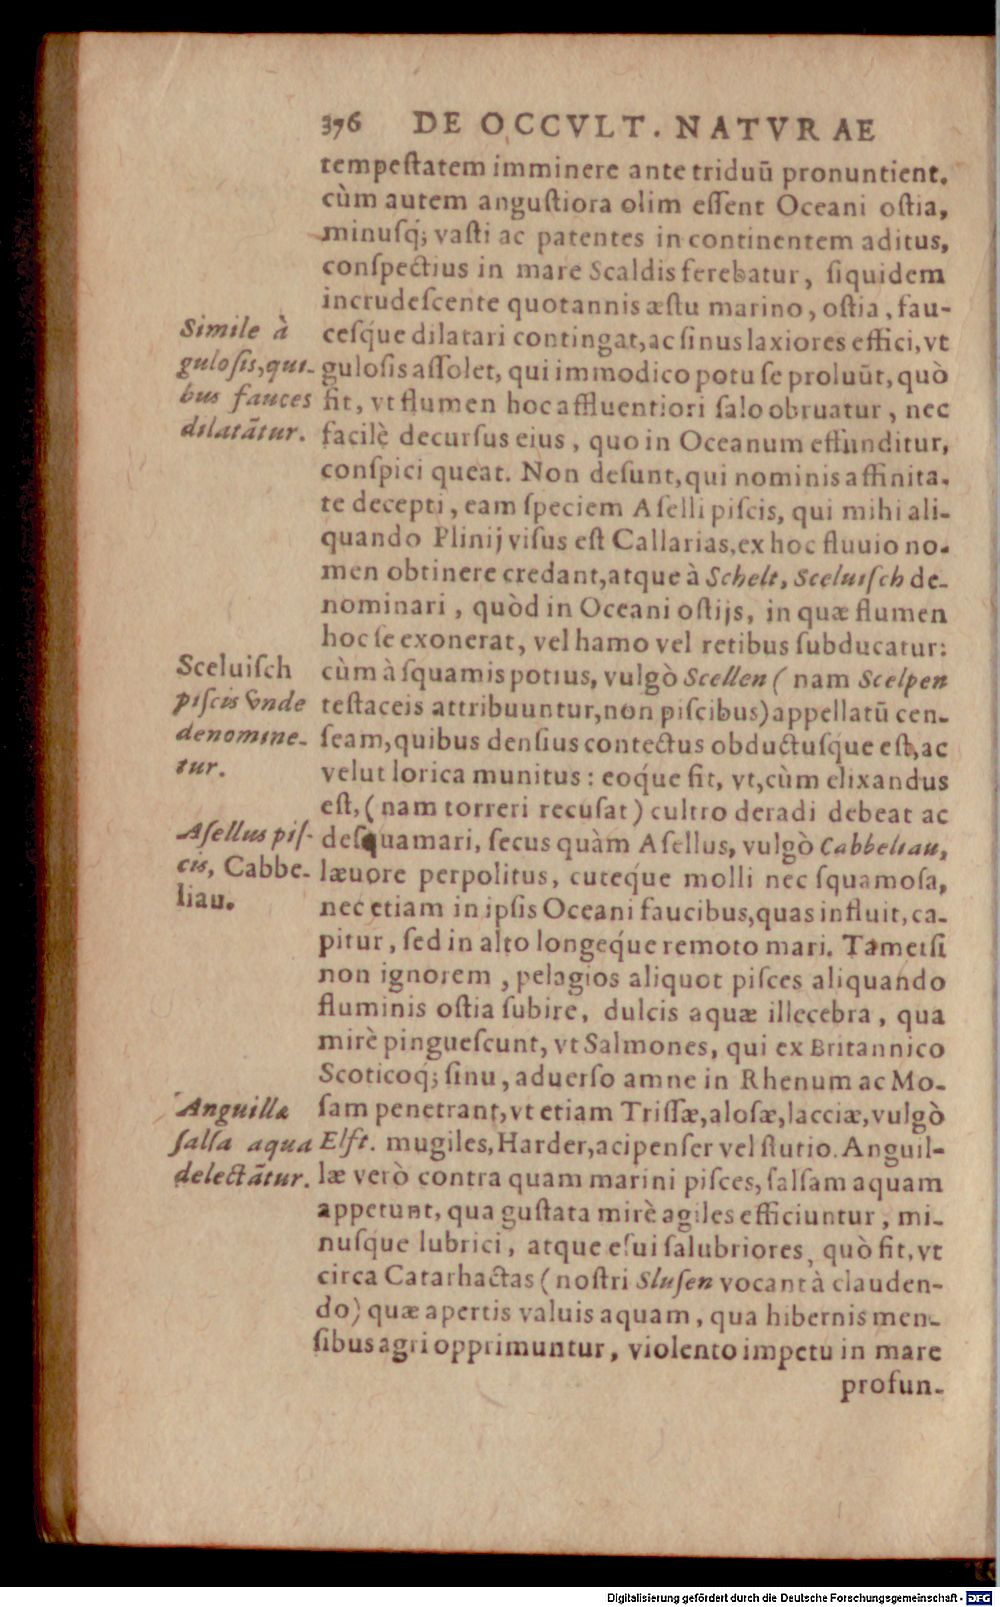 376 DE OCCVLT. NATVRAE
tempeſtatem imminere ante triduū pronuntient.
cùm autem anguſtiora olim eſſent Oceani oſtia,
minuſq́; vaſti ac patentes in continentem aditus,
conſpectius in mare Scaldis ferebatur, ſiquidem
incrudeſcente quotannis æſtu marino, oſtia, fau-
ceſq́ue dilatari contingat, ac ſinus laxiores effici, vt
guloſis aſſolet, qui immodico potu ſe proluūt, quò
fit, vt flumen hoc affluentiori ſalo obruatur, nec
facilè decurſus eius, quo in Oceanum effunditur,
conſpici queat. Non deſunt, qui nominis affinita-
te decepti, eam ſpeciem Aſelli piſcis, qui mihi ali-
quando Plinij viſus eſt Callarias, ex hoc fluuio no-
men obtinere credant, atque à Schelt, Sceluiſch de-
nominari, quòd in Oceani oſtijs, in quæ flumen
hoc ſe exonerat, vel hamo vel retibus ſubducatur:
cùm à ſquamis potius, vulgò Scellen (nam Scelpen
teſtaceis attribuuntur, non piſcibus) appellatū cen-
ſeam, quibus denſius contectus obductuſque eſt, ac
velut lorica munitus: eoq́ue fit, vt, cùm elixandus
eſt, (nam torreri recuſat) cultro deradi debeat ac
deſquamari, ſecus quàm Aſellus, vulgò Cabbeliau,
læuore perpolitus, cuteq́ue molli nec ſquamoſa,
nec etiam in ipſis Oceani faucibus, quas influit, ca-
pitur, ſed in alto longeq́ue remoto mari. Tametſi
non ignorem, pelagios aliquot piſces aliquando
fluminis oſtia ſubire, dulcis aquæ illecebra, qua
mirè pingueſcunt, vt Salmones, qui ex Britannico
Scoticoq́; ſinu, aduerſo amne in Rhenum ac Mo-
ſam penetrant, vt etiam Triſſæ, aloſæ, lacciæ, vulgò
Elft. mugiles, Harder, acipenſer vel ſtutio. Anguil-
læ verò contra quam marini piſces, ſalſam aquam
appetunt, qua guſtata mirè agiles efficiuntur, mi-
nuſque lubrici, atque eſui ſalubriores, quò fit, vt
circa Catarhactas (noſtri Sluſen vocant à clauden-
do) quæ apertis valuis aquam, qua hibernis men-
ſibus agri opprimuntur, violento impetu in mare
profun-
Simile à
guloſis, qui-
bus fauces
dilatātur.
Sceluiſch
piſcis vnde
denomine-
tur.
Aſellus piſ-
cis, Cabbe-
liau.
Anguillæ
ſalſa aqua
delectātur.
Digitalisierung gefördert durch die Deutsche Forschungsgemeinschaft - DFG